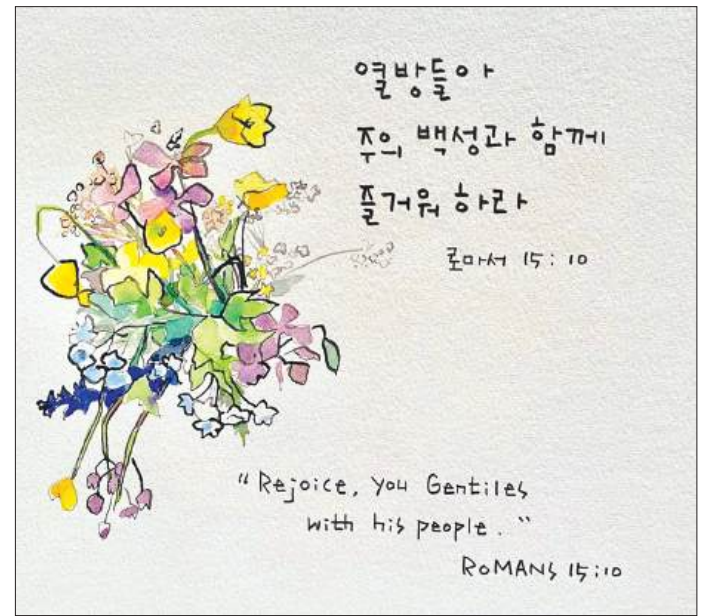 열방들아
주의 백성과 함께
즐거워 하라
로마서 15:10
"Rejoice, you Gentiles
with his people."
ROMANS 15:10